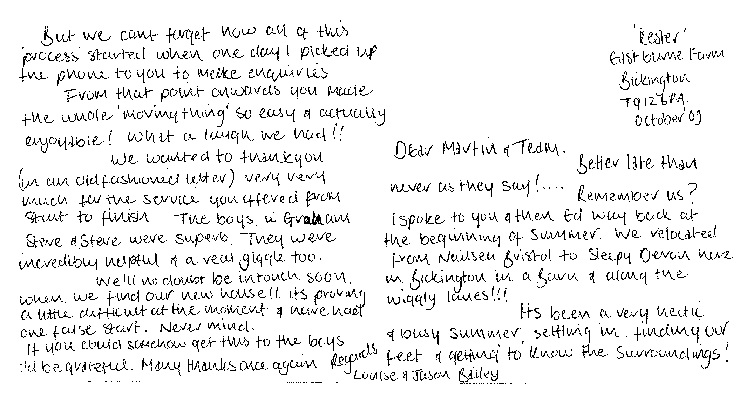 'Rester'
Eastbourne Farm
Bickington
TQ12 6PA.
October '09
Dear Martin & Team.
Better late than
never as they say!....
Remember us?
I spoke to you & then Ed way back at
the beginning of Summer. We relocated
from Nailsea Bristol to Sleepy Devon here
in Bickington in a Barn & along the
wiggly lanes!!!
Its been a very hectic
& busy Summer, settling in, finding our
feet & getting to know the Surroundings!
But we cant forget how all of this
process started when one day I picked up
the phone to you to make enquiries
From that point onwards you made
the whole 'moving thing' so easy & actually
enjoyable! What a laugh we had!!
We wanted to thankyou
(in an old fashioned letter) very very
much for the service you offered from
Start to finish The boys ie Graham
Steve & Steve were superb. They were
incredibly helpful & a real giggle too.
We'll no doubt be in touch soon,
when we find our new house!! its proving
a little difficult at the moment & have had
one false start. Never mind.
If you could somehow get this to the boys
I'd be grateful. Many thanks once again Regards
Louise & Jason Bailey